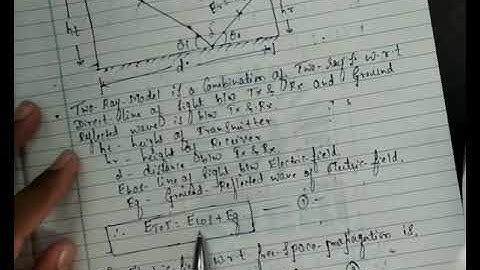 ht
Er
hr
θi
θo
d
Two-Ray-Model is a Combination of Two-Ray's w.r.t
Direct line of sight b/w Tx & Rx and Ground
Reflected wave is b/w Tx & Rx
ht - height of Transmitter
hr - height of Receiver
d - distance b/w Tx & Rx
Elos - line of sight b/w Electric-field
Eg - Ground-Reflected wave of electric-field.
∴ ETOT = Elos + Eg — ①
w.r.t free-space propagation is,